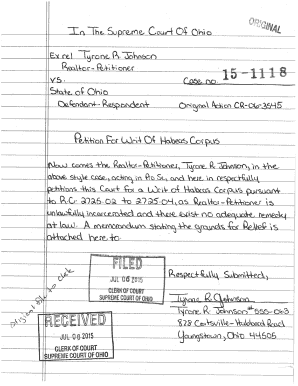 ORIGINAL
In The Supreme Court Of Ohio
Ex rel Tyrone R Johnson
Realtor-Petitioner
vs.
Case no. 15-1118
State of Ohio
Defendant-Respondent Original Action CR-06-3545
Petition For Writ Of Habeas Corpus
Now comes the Realtor-Petitioner, Tyrone R. Johnson, in the
above style case, acting, in Pro Se, and here in respectfully
petitions this Court for a Writ of Habeas Corpus pursuant
to R.C. 2725.02 to 2725.04, as Realtor-Petitioner is
unlawfully incarcerated and there exist no adequate remedy
at law. A memorandum stating the grounds for Relief is
attached here to.
FILED
JUL 06 2015
CLERK OF COURT
SUPREME COURT OF OHIO
Respectfully Submitted,
Tyrone R Johnson
Tyrone R. Johnson
Youngstown, Ohio 44505
original to clerk
RECEIVED
JUL 06 2015
CLERK OF COURT
SUPREME COURT OF OHIO